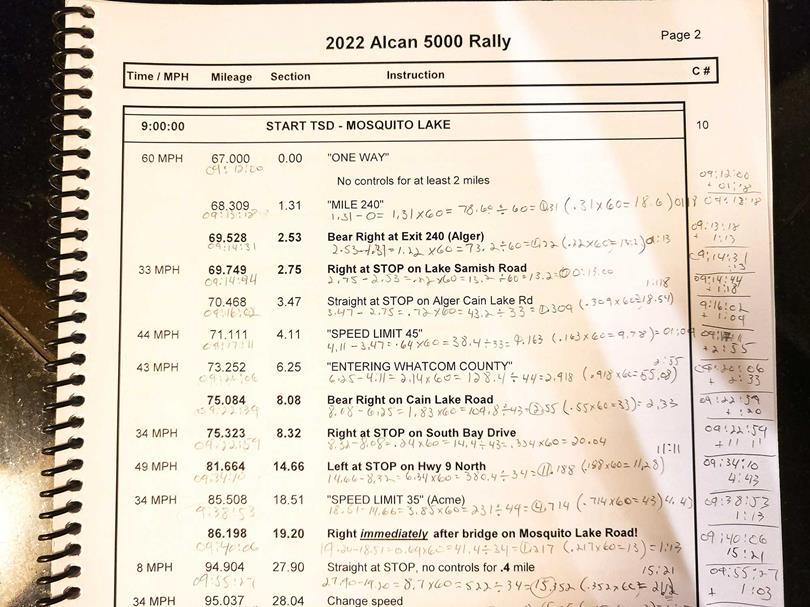 2022 Alcan 5000 Rally
Page 2
Time / MPH Mileage Section Instruction C #
9:00:00 START TSD - MOSQUITO LAKE 10
60 MPH 67.000 0.00 "ONE WAY"
09:12:00
No controls for at least 2 miles
09:12:00
+ 01:18
68.309 1.31 "MILE 240" 09:13:18
09:13:18 1.31-0= 1.31x60= 78.60÷60= 1.31 (.31x60=18.6) 01:18
09:13:18
+ 1:13
69.528 2.53 Bear Right at Exit 240 (Alger)
09:14:31 2.53-1.31=1.22x60=73.2÷60=1.22 (.22x60=13.2) 01:13
09:14:31
33 MPH 69.749 2.75 Right at STOP on Lake Samish Road
09:14:44 2.75-2.53=.22x60=13.2÷60=13.2= 0:13.00
09:14:44
+ 1:18
70.468 3.47 Straight at STOP on Alger Cain Lake Rd 1:18
09:16:02 3.47-2.75=.72x60=43.2÷33=1.309 (.309x60=18.54)
9:16:02
+ 1:09
44 MPH 71.111 4.11 "SPEED LIMIT 45"
09:17:11 4.11-3.47=.64x60=38.4÷33=1.163 (.163x60=9.78)= 01:09
+ 2:55
43 MPH 73.252 6.25 "ENTERING WHATCOM COUNTY" 2:55
09:20:06 6.25-4.11=2.14x60=128.4÷44=2.918 (.918x60=55.08)
09:20:06
+ 2:33
75.084 8.08 Bear Right on Cain Lake Road
09:22:39 8.08-6.25=1.83x60=109.8÷43=2.55 (.55x60=33)=2.33
09:22:39
+ :20
34 MPH 75.323 8.32 Right at STOP on South Bay Drive
09:22:59 8.32-8.08=.24x60=14.4÷43=.334x60=20.04
09:22:59
+11 11
49 MPH 81.664 14.66 Left at STOP on Hwy 9 North 11:11
09:34:10 14.66-8.32=6.34x60=380.4÷34=11.188 (.188x60=11.28)
09:34:10
4:43
34 MPH 85.508 18.51 "SPEED LIMIT 35" (Acme)
9:38:53 18.51-14.66=3.85x60=231÷49=4.714 (.714x60=43) 4.43
09:38:53
1:13
86.198 19.20 Right immediately after bridge on Mosquito Lake Road!
09:40:06 19.20-18.51=0.69x60=41.4÷34=1.217 (.217x60=13)=1:13
09:40:06
15:21
8 MPH 94.904 27.90 Straight at STOP, no controls for .4 mile 15:21
09:55:27 27.90-19.20=8.7x60=522÷34=15.352 (.352x60=21.12
09:55:27
+ 1:03
34 MPH 95.037 28.04 Change speed